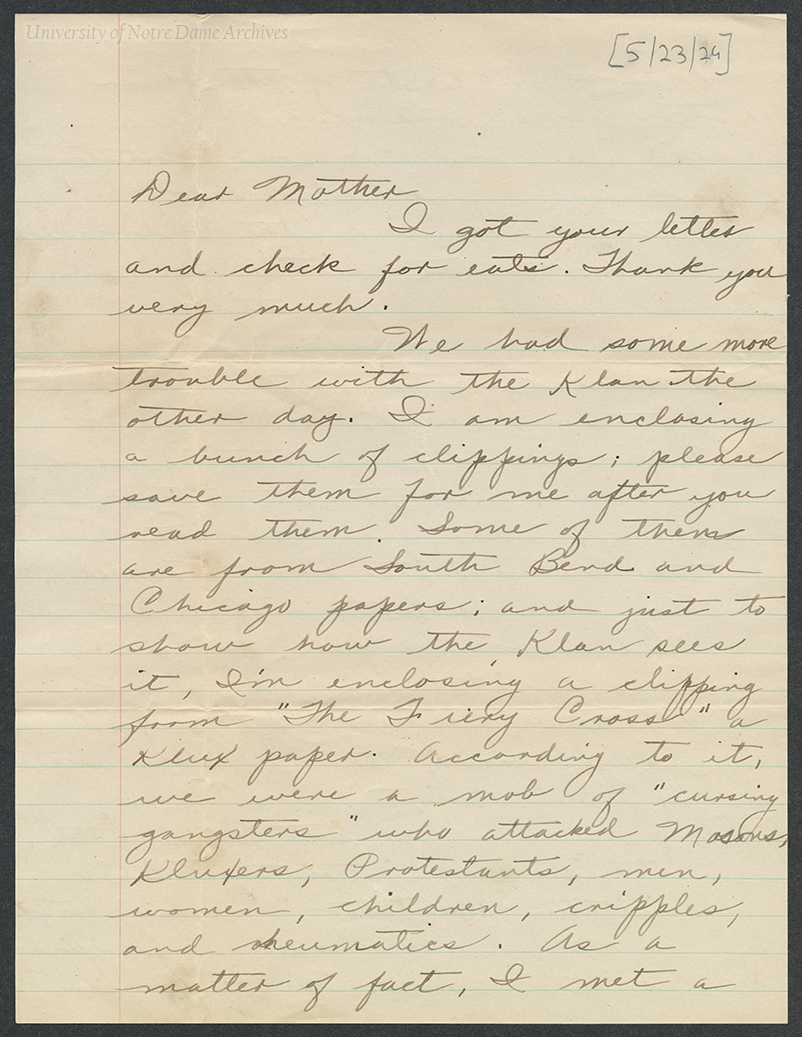 University of Notre Dame Archives
[5/23/24]
Dear Mother
I got your letter
and check for eats. Thank you
very much.
We had some more
trouble with the Klan the
other day. I am enclosing
a bunch of clippings; please
save them for me after you
read them. Some of them
are from South Bend and
Chicago papers; and just to
show how the Klan sees
it, I'm enclosing a clipping
from "The Fiery Cross" a
Klux paper. According to it,
we were a mob of "cursing
gangsters" who attacked Masons,
Kluxers, Protestants, men,
women, children, cripples,
and rheumatics. As a
matter of fact, I met a